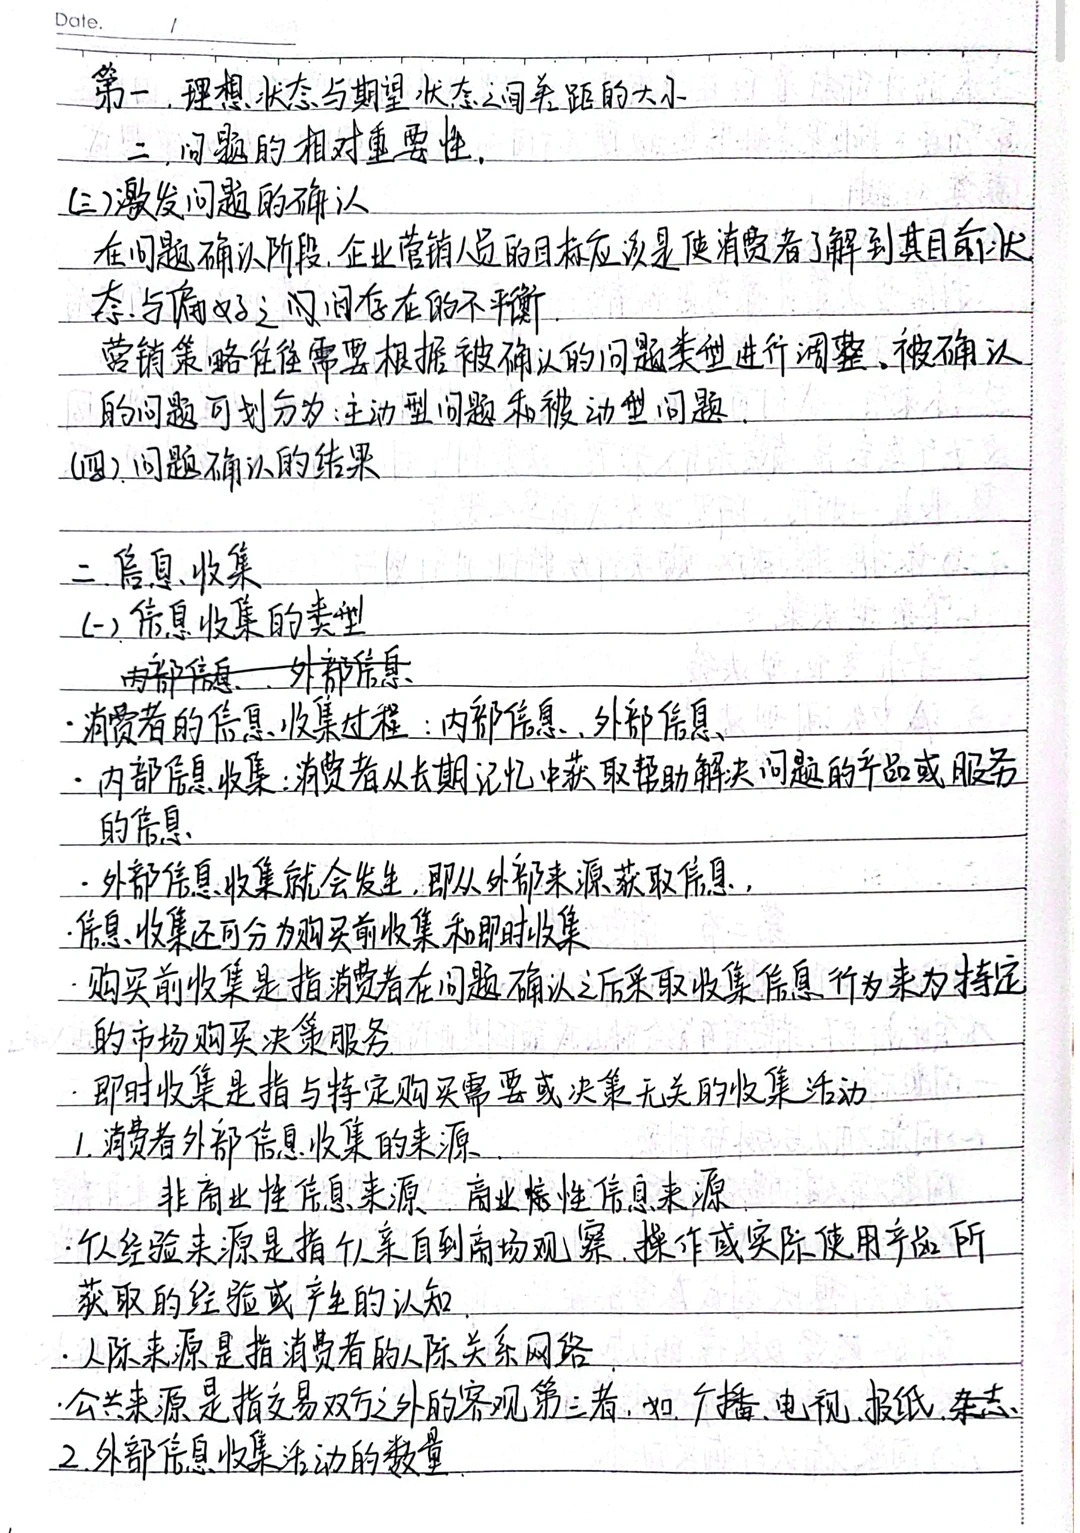 Date. /
第一.理想状态与期望状态之间差距的大小
二.问题的相对重要性.
(三)激发问题的确认
在问题确认阶段.企业营销人员的目标应该是使消费者了解到其目前状
态与偏好之间间存在的不平衡.
营销策略往往需要根据被确认的问题类型进行调整。被确认
的问题可划分为:主动型问题和被动型问题.
(四).问题确认的结果
二.信息收集
(一)信息收集的类型
内部信息、外部信息
·消费者的信息收集过程:内部信息、外部信息
·内部信息收集:消费者从长期记忆中获取帮助解决问题的产品或服务
的信息
·外部信息收集就会发生.即从外部来源获取信息,
·信息收集还可分为购买前收集和即时收集
·购买前收集是指消费者在问题确认之后采取收集信息行为来为特定
的市场购买决策服务
·即时收集是指与特定购买需要或决策无关的收集活动
1.消费者外部信息收集的来源.
非商业性信息来源 商业性信息来源.
·个人经验来源是指个人亲自到商场观察.操作或实际使用产品所
获取的经验或产生的认知.
·人际来源是指消费者的人际关系网络.
·公共来源是指交易双方之外的客观第三者.如.广播.电视.报纸.杂志.
2.外部信息收集活动的数量.